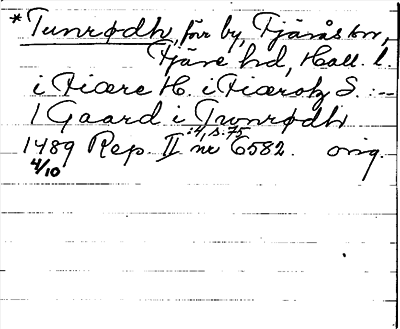 *Tunrødh, förr by, Fjärås sn,
Fjäre hd, Hall. l.
i Fiære H. i Fiæraß S. :–
1 Gaard i Twnrødh
i 4, s. 75
1489 Rep. II nr 6582. orig.
4/10